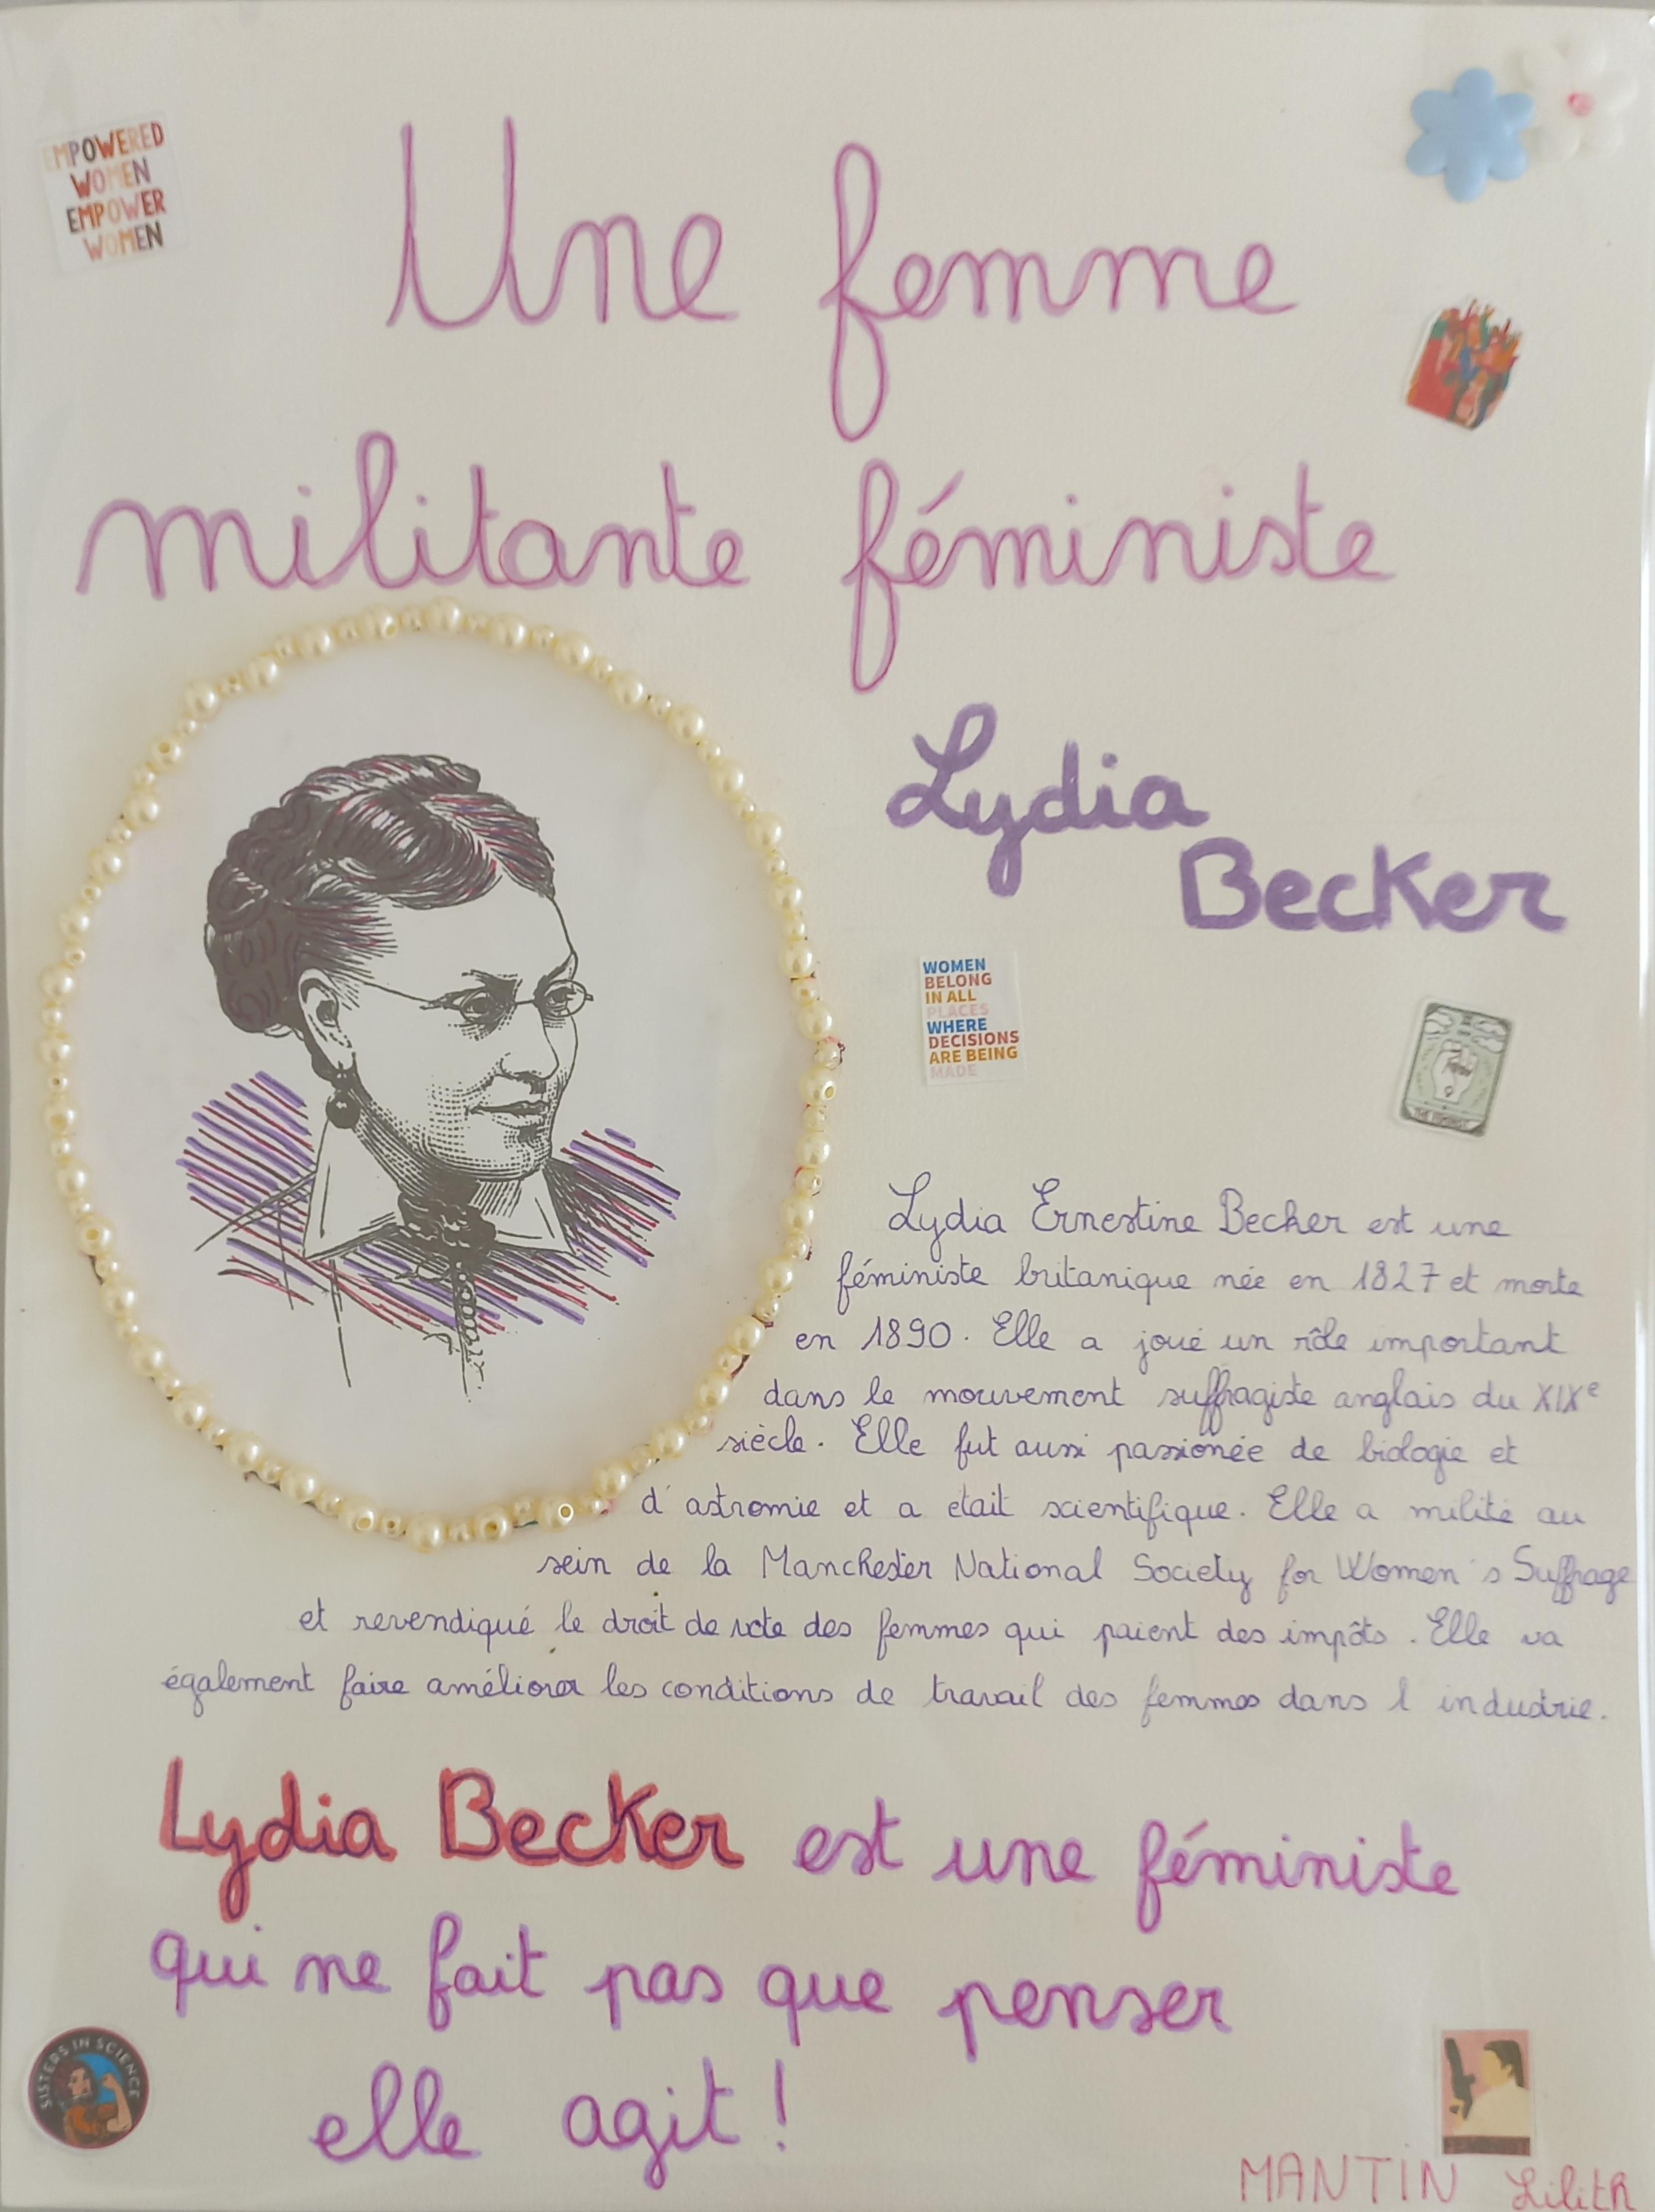 EMPOWERED
WOMEN
EMPOWER
WOMEN
Une femme
militante féministe
Lydia
Becker
WOMEN
BELONG
IN ALL
PLACES
WHERE
DECISIONS
ARE BEING
MADE
THE FEMINIST
Lydia Ernestine Becker est une
féministe britanique née en 1827 et morte
en 1890. Elle a joué un rôle important
dans le mouvement suffragiste anglais du XIXe
siècle. Elle fut aussi passionée de biologie et
d'astromie et a était scientifique. Elle a milité au
sein de la Manchester National Society for Women's Suffrage
et revendiqué le droit de vote des femmes qui paient des impôts. Elle va
également faire améliorer les conditions de travail des femmes dans l industrie.
Lydia Becker est une féministe
qui ne fait pas que penser
elle agit !
SISTERS IN SCIENCE
MANTIN Lilith